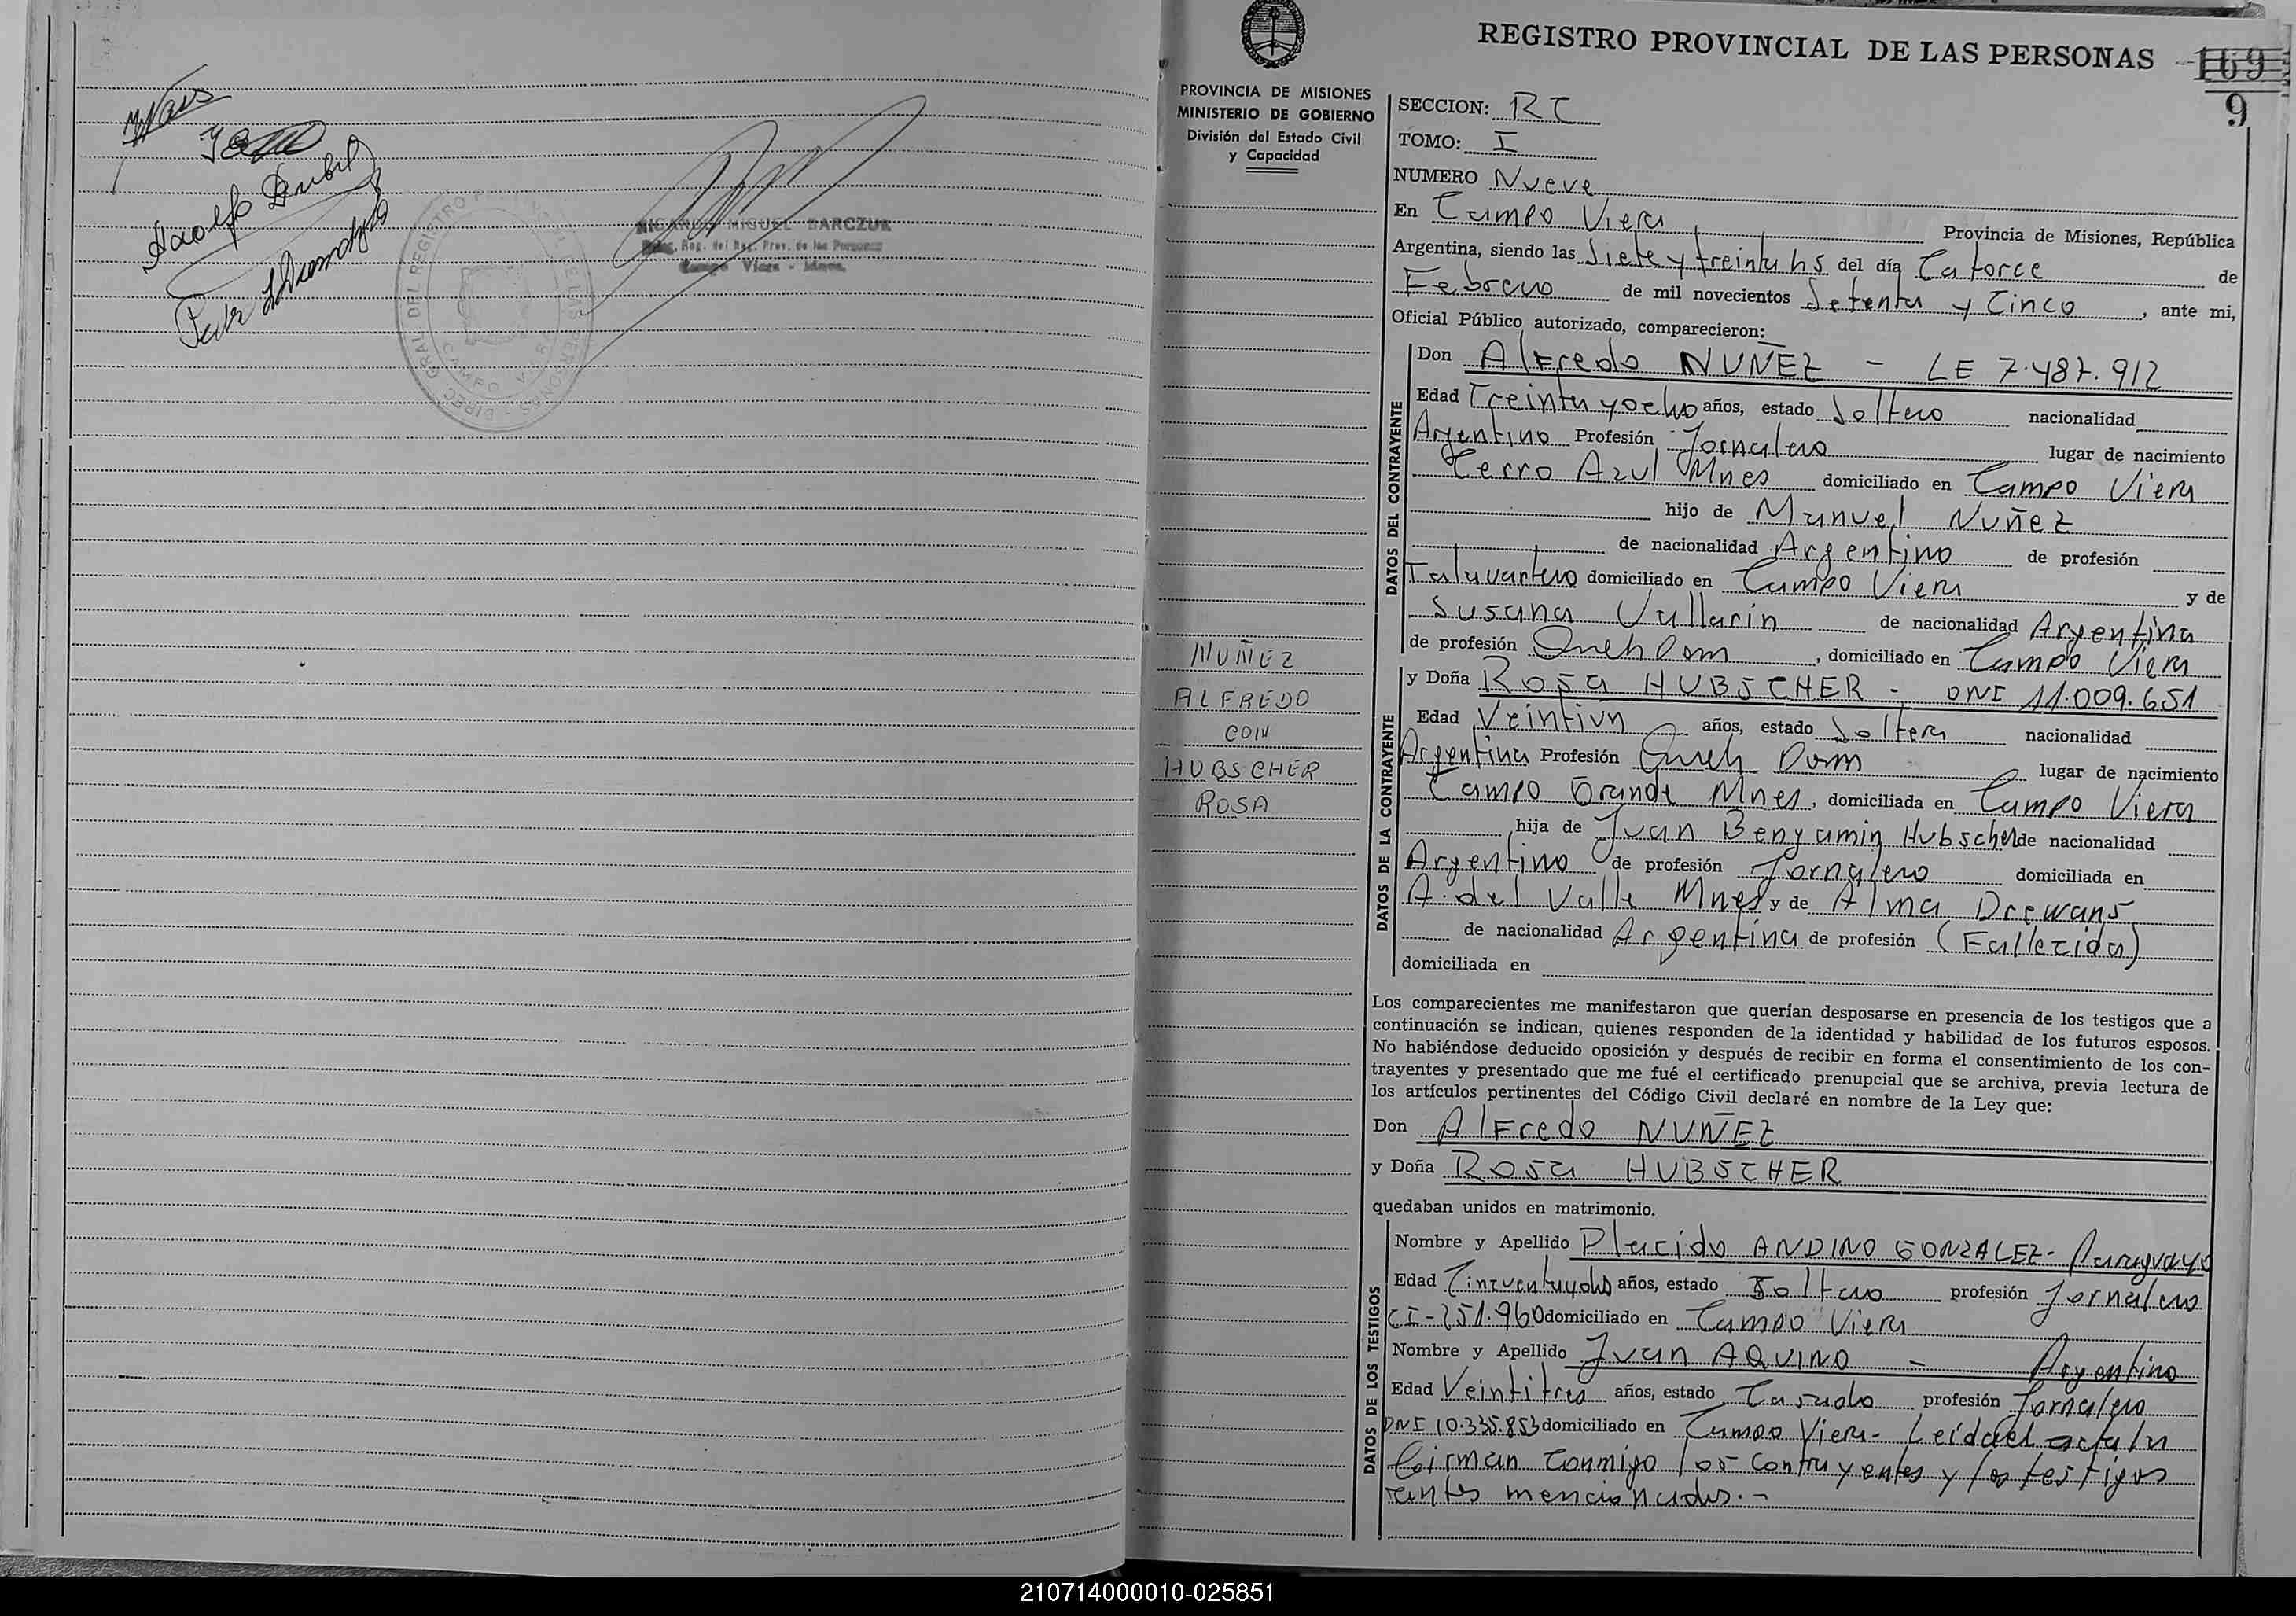 Adolfo
Pedro
RICARDO MIGUEL BARCZUK
Reg. del Reg. Prov. de las Personas
Campo Viera - Mnes.
REGISTRO PROVINCIAL DE LAS PERSONAS
169
9
PROVINCIA DE MISIONES
MINISTERIO DE GOBIERNO
División del Estado Civil
y Capacidad
NUÑEZ
ALFREDO
CON
HUBSCHER
ROSA
SECCION: RC
TOMO: I
NUMERO Nueve
En Campo Viera Provincia de Misiones, República
Argentina, siendo las Siete y treinta hs del día Catorce de
Febrero de mil novecientos Setenta y Cinco, ante mi,
Oficial Público autorizado, comparecieron:
DATOS DEL CONTRAYENTE
Don Alfredo NUÑEZ - LE 7.487.912
Edad Treinta y ocho años, estado Soltero nacionalidad
Argentino Profesión Jornalero lugar de nacimiento
Cerro Azul Mnes domiciliado en Campo Viera
hijo de Manuel Nuñez
de nacionalidad Argentino de profesión
Talavartero domiciliado en Campo Viera y de
Susana Vallarin de nacionalidad Argentina
de profesión Queh Dom, domiciliado en Campo Viera
DATOS DE LA CONTRAYENTE
y Doña Rosa HUBSCHER - DNI 11.009.651
Edad Veintiun años, estado Soltera nacionalidad
Argentina Profesión Queh Dom lugar de nacimiento
Campo Grande Mnes, domiciliada en Campo Viera
hija de Juan Benyamin Hubscher de nacionalidad
Argentino de profesión Jornalero domiciliada en
A. del Valle Mnes y de Alma Drewans
de nacionalidad Argentina de profesión (Fallecida)
domiciliada en
Los comparecientes me manifestaron que querían desposarse en presencia de los testigos que a
continuación se indican, quienes responden de la identidad y habilidad de los futuros esposos.
No habiéndose deducido oposición y después de recibir en forma el consentimiento de los con-
trayentes y presentado que me fué el certificado prenupcial que se archiva, previa lectura de
los artículos pertinentes del Código Civil declaré en nombre de la Ley que:
Don Alfredo NUÑEZ
y Doña Rosa HUBSCHER
quedaban unidos en matrimonio.
DATOS DE LOS TESTIGOS
Nombre y Apellido Placido ANDINO GONZALEZ - Paraguayo
Edad Cincuenta y dos años, estado Soltero profesión Jornalero
CI-251.960 domiciliado en Campo Viera
Nombre y Apellido Juan AQUINO - Argentino
Edad Veintitres años, estado Casado profesión Jornalero
DNI 10.335.853 domiciliado en Campo Viera - Leída el acta la
firman conmigo los contrayentes y los testigos
antes mencionados.-
210714000010-025851